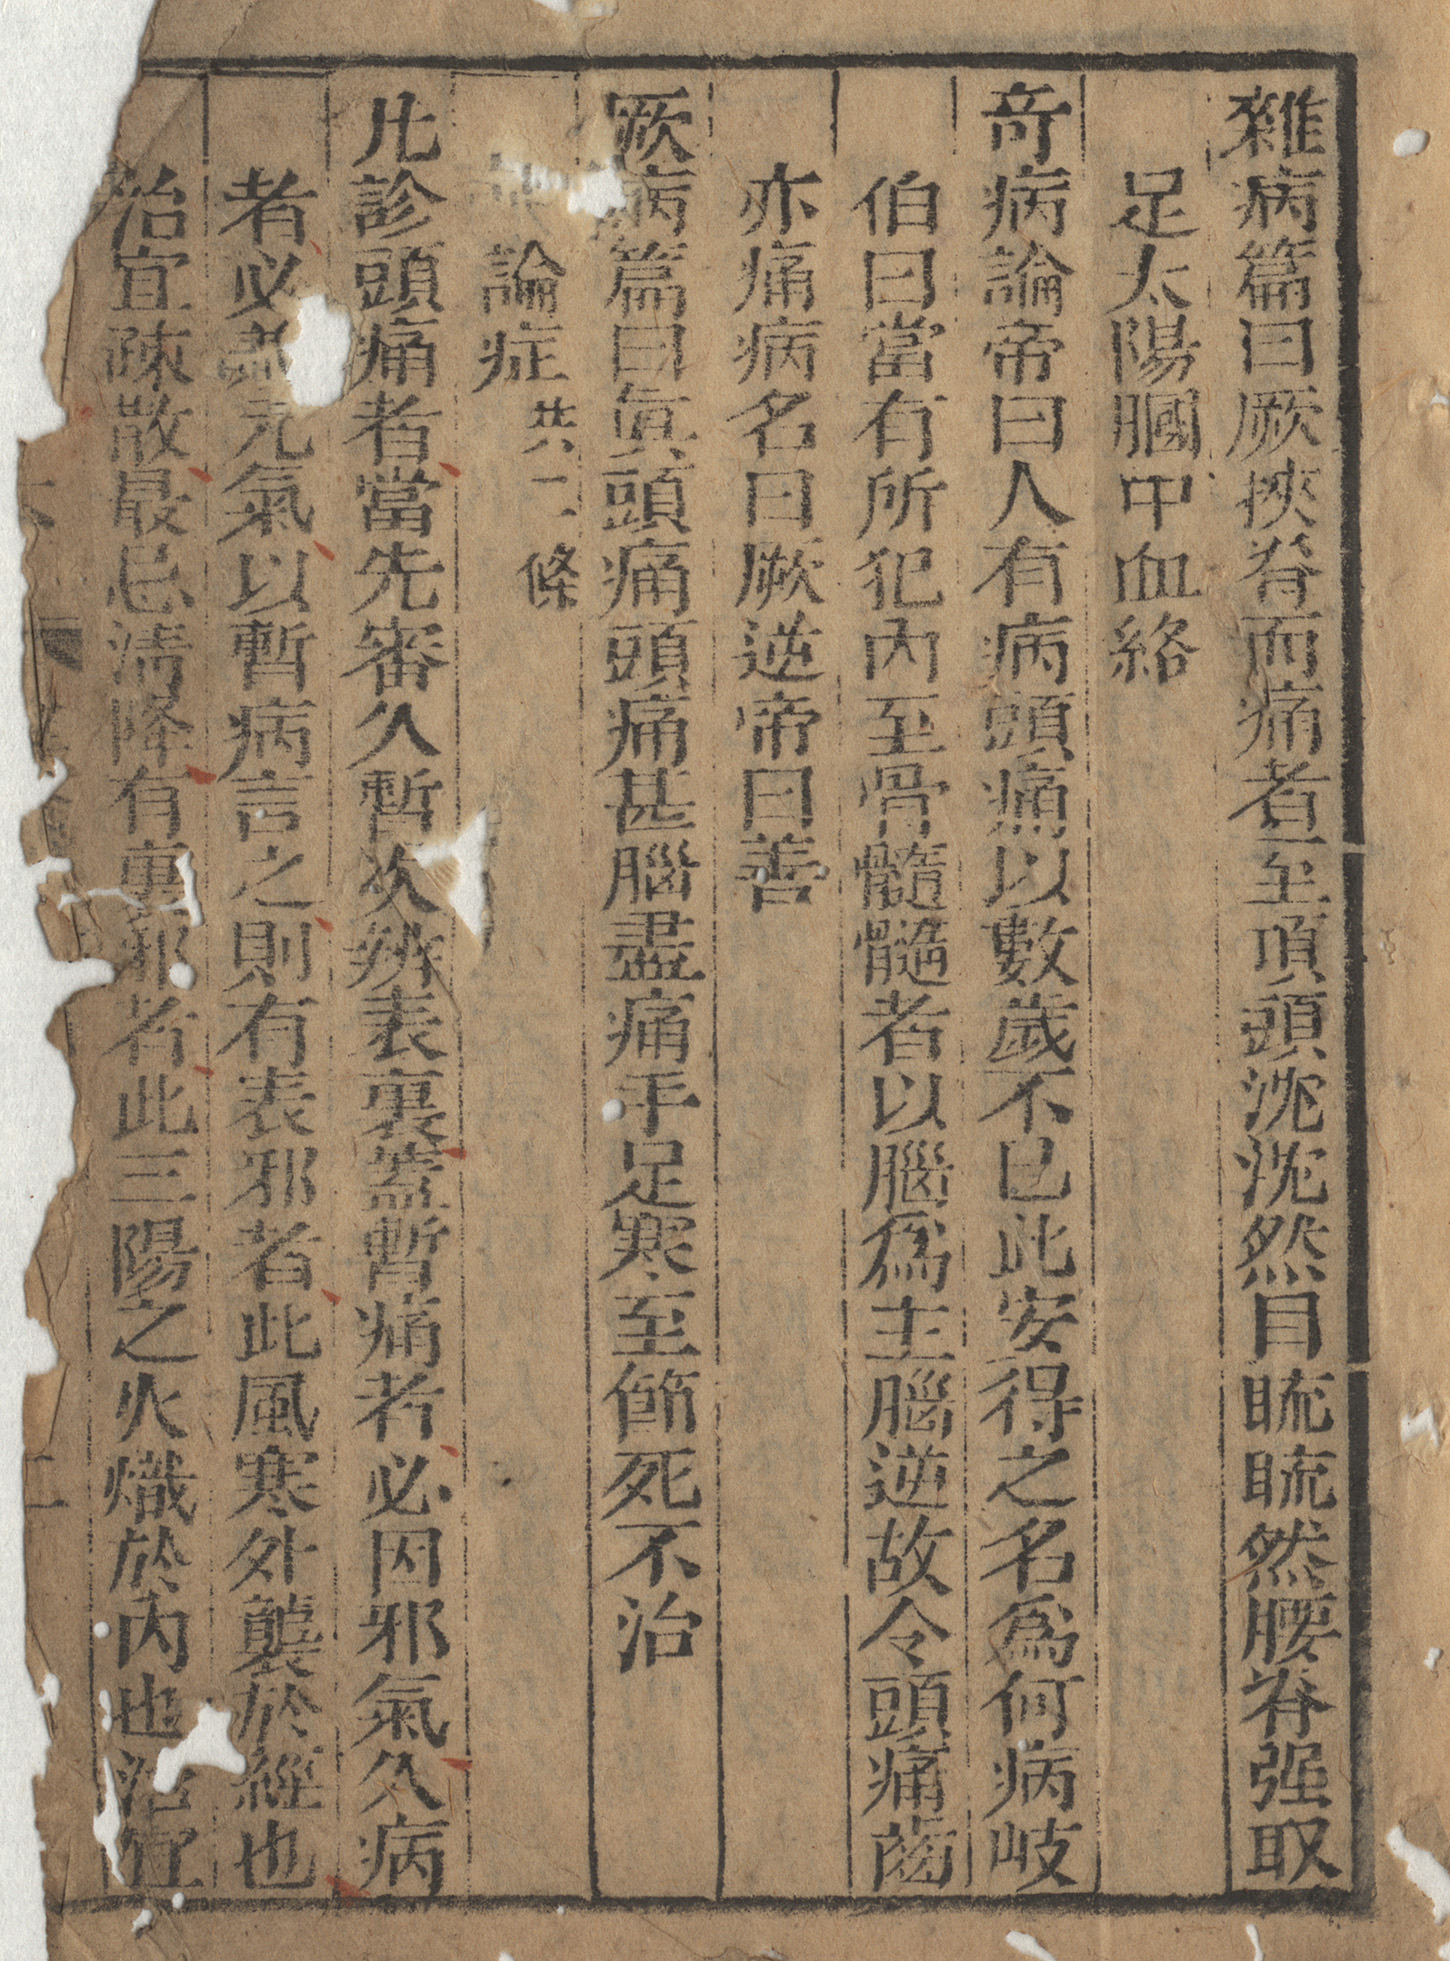 雜病篇曰厥挾脊而痛者至項頭沈沈然目䀮䀮然腰脊强取
足太陽膕中血絡
奇病論帝曰人有病頭痛以數歲不已此安得之名爲何病岐
伯曰當有所犯內至骨髓髓者以腦爲主腦逆故令頭痛齒
亦痛病名曰厥逆帝曰善
厥病篇曰眞頭痛頭痛甚腦盡痛手足寒至節死不治
論症共二條
凡診頭痛者當先審久暫次辨表裏蓋暫痛者必因邪氣久病
者必兼元氣以暫病言之則有表邪者此風寒外襲於經也
治宜疎散最忌淸降有裏邪者此三陽之火熾於內也治宜
二